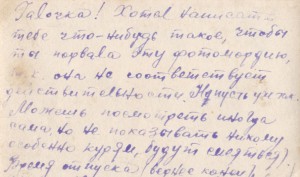 Галочка! Хотел написать
тебе что-нибудь такое, чтобы
ты порвала эту фотомордию,
т.к. она не соответствует
действительности. Ну пусть уж
Можешь посмотреть иногда
сама, но не показывать никому
особенно курям, будут смеяться).
Время отпуска